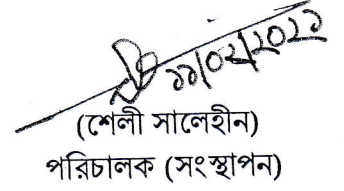 ১১/০২/২০২১
(শেলী সালেহীন)
পরিচালক (সংস্থাপন)